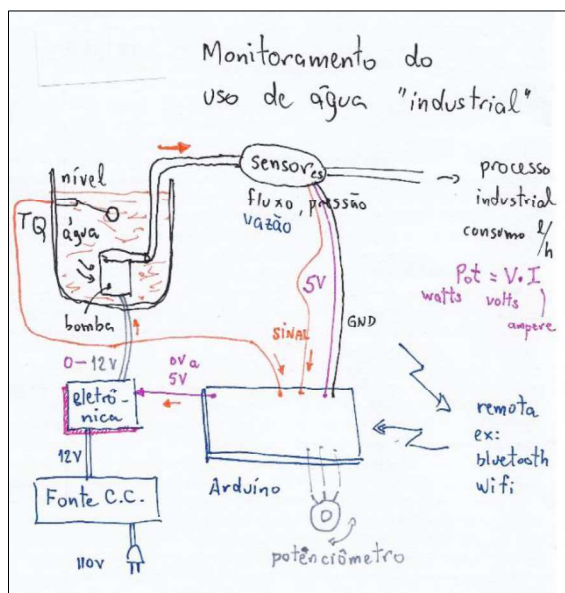 Monitoramento do
uso de água "industrial"
nível
TQ
água
bomba
sensores
fluxo, pressão
vazão
→ processo
industrial
consumo l/h
Pot = V.I
watts volts ampere
5V
GND
SINAL
0-12V
0V a
5V
eletrô-
nica
12V
Fonte C.C.
110V
Arduíno
potênciômetro
remota
ex:
bluetooth
wifi